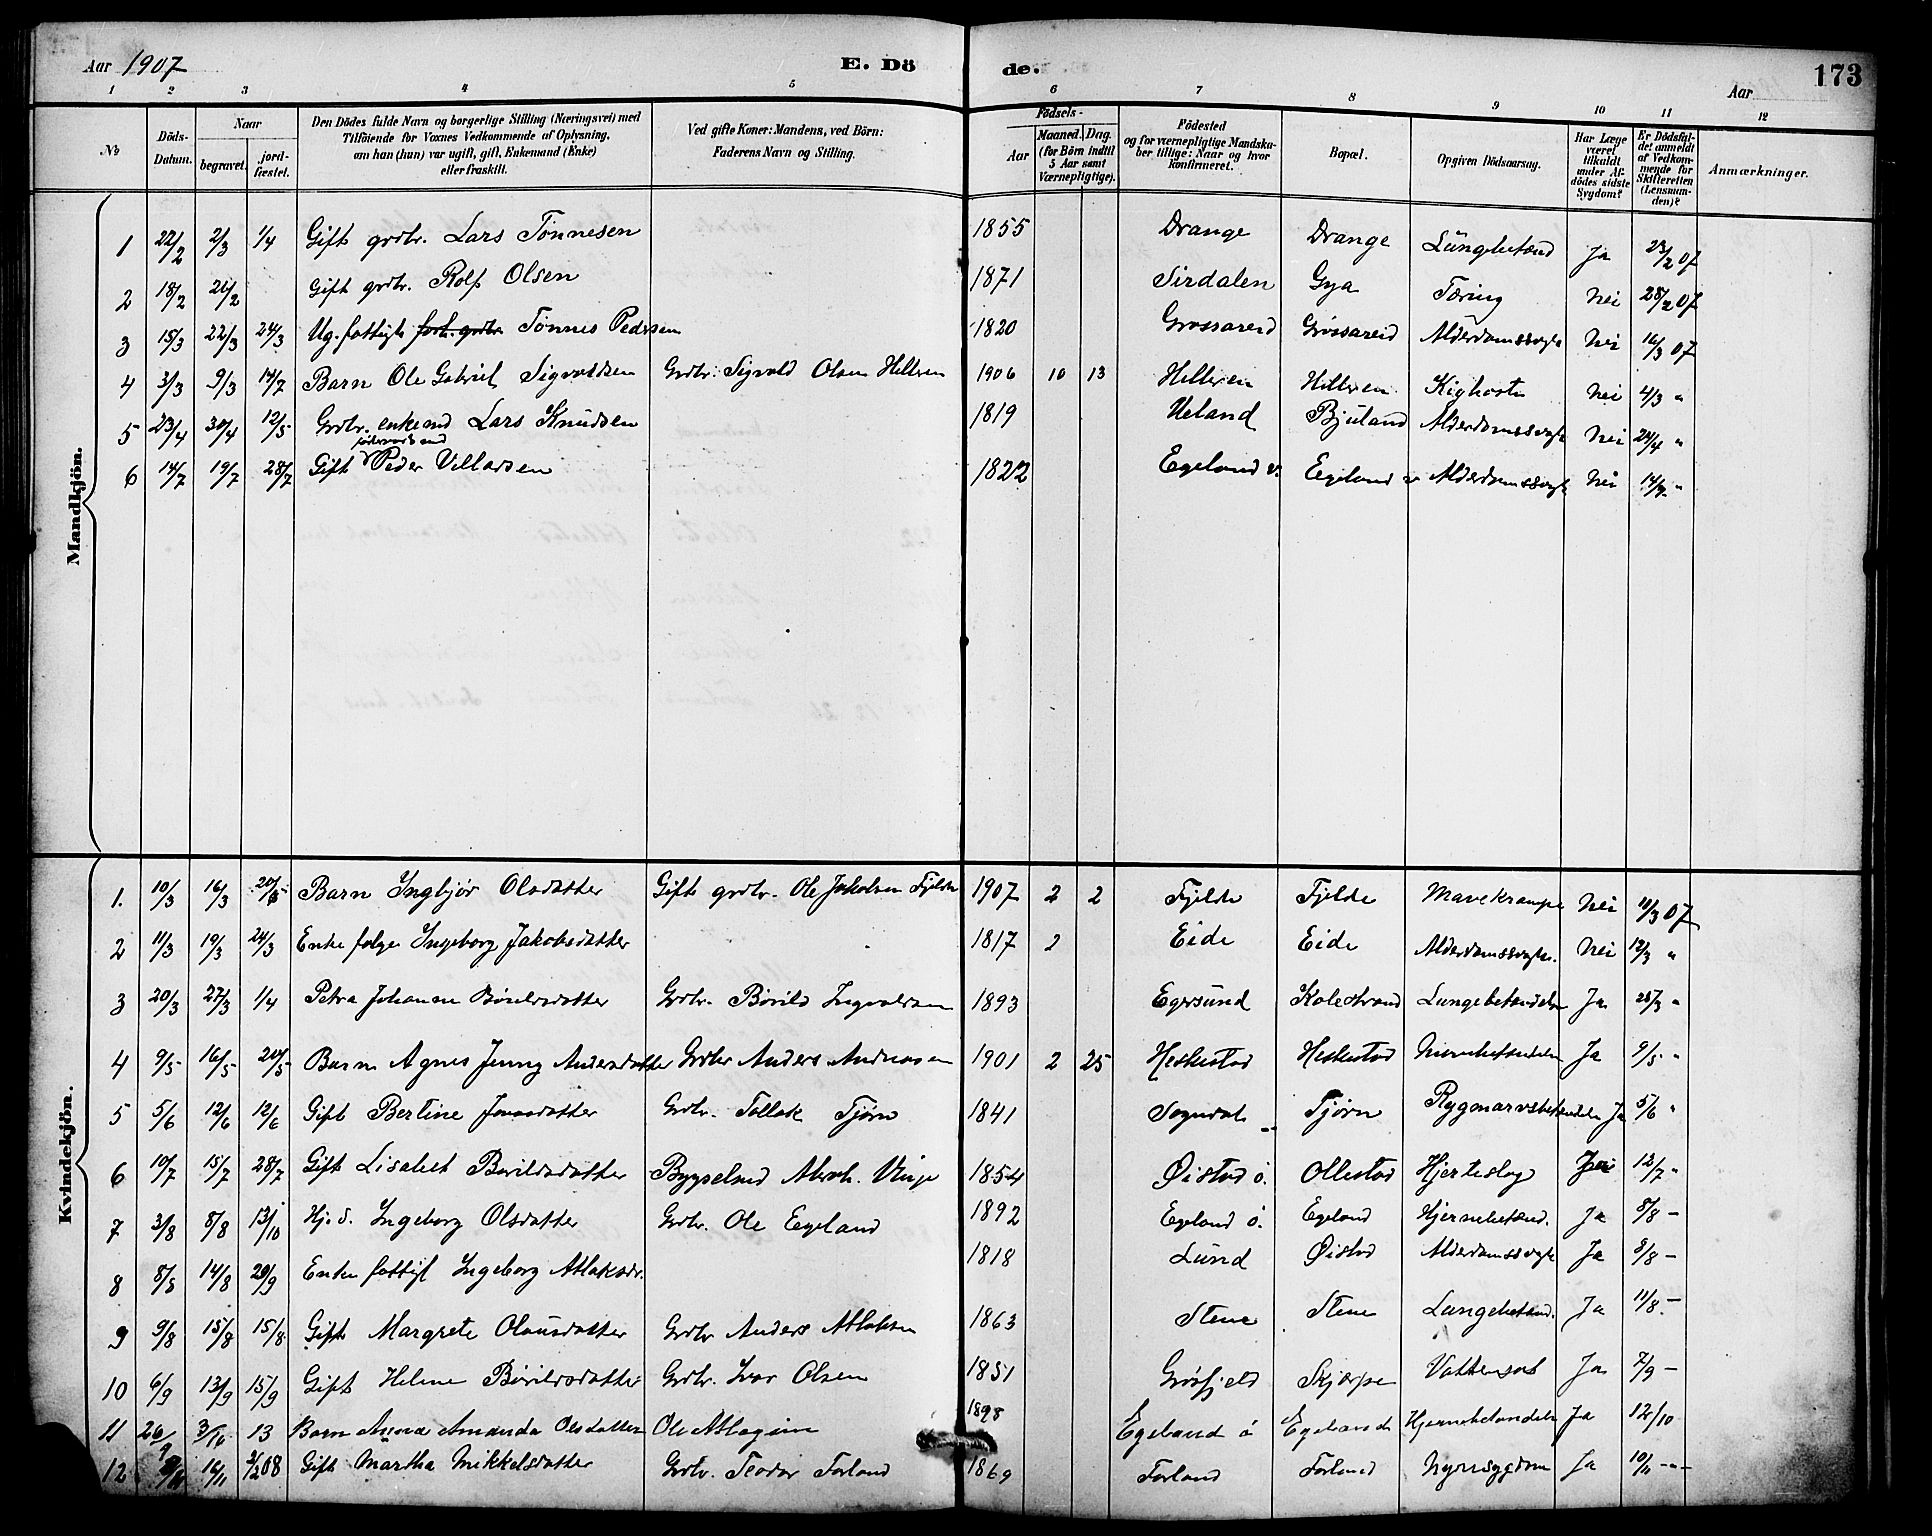 Aar 1907 E. Dö de. Aar 173
1 2 3 4 5 6 7 8 9 10 11 12
No Döds-Datum. Naar begravet. jord-fæstet. Den Dödes fulde Navn og borgerlige Stilling (Næringsvei) med Tilföiende for Voxnes Vedkommende af Oplysning, om han (hun) var ugift, gift, Enkemand (Enke) eller fraskilt. Ved gifte Koner: Mandens, ved Börn: Faderens Navn og Stilling. Födsels- Aar Maaned. Dag. (for Börn indtil 5 Aar samt Værnepligtige). Födested og for værnepligtige Mandskaber tillige: Naar og hvor konfirmeret. Bopæl. Opgiven Dödsaarsag. Har Læge været tilkaldt under Afdödes sidste Sygdom? Er Dödsfaldet anmeldt af Vedkommende for Skifteretten (Lensmanden)? Anmærkninger.
Mandkjön.
1 22/2 2/3 1/4 Gift grdbr. Lars Tönnesen 1855 Drange Drange Lüngebetænd Ja 23/2 07
2 18/2 26/2 Gift grdbr. Rolf Olsen 1871 Sirdalen Gya Tæring Nei 28/2 07
3 15/3 22/3 24/3 Ug. fattigl. forh. grdbr. Tönnes Pedersen 1820 Grøssareid Grøssareid Alderdomssvagh Nei 16/3 07
4 3/3 9/3 14/7 Barn Ole Gabriel Sigvaldsen Grdbr. Sigvald Olsen Helleren 1906 10 13 Helleren Helleren Kighoste Nei 4/3 "
5 23/4 30/4 12/5 Grdbr. enkemd Lars Knudsen 1819 Ueland Bjuland Alderdomssvagh Nei 24/4 "
6 14/7 19/7 28/7 Gift Peder Villarsen 1822 Egeland v. Egeland v Alderdomssvagh Nei 14/7 "
Kvindekjön.
1. 10/3 16/3 20/5 Barn Ingbjör Olsdatter Gift grdbr. Ole Jakobsen Fjelde 1907 2 2 Fjelde Fjelde Mavekrampe Nei 11/3 07
2 11/3 19/3 24/3 Enke Ingeborg Jakobsdatter 1817 2 Eide Eide Alderdomssvaghe. Nei 12/3 "
3 20/3 27/3 1/4 Petra Johanne Börildsdatter Grdbr. Börild Ingvaldsen 1893 Egersund Kolestrand Lungebetændelse Ja 25/3 "
4 9/5 16/5 20/5 Barn Agnes Jenny Andersdatter Grdbr Anders Andreasen 1901 2 25 Heskestad Heskestad Ja 9/5 "
5 5/6 12/6 12/6 Gift Bertine Jonasdatter Grdbr. Tollak Tjörn 1841 Sogndal Tjörn Rygmarvsbetændelse Ja 5/6 "
6 10/7 15/7 28/7 Gift Lisabet Börildsdatter Bygselmd Abrah. 1854 Øistad ö. Ollestad Hjerteslag 12/7 "
7 3/8 8/8 13/10 Hj. d. Ingeborg Olsdatter Grdbr. Ole Egeland 1892 Egeland ö. Egeland Hjernebetænd. Ja 5/8 –
8 8/8 14/8 29/9 Enke fattigl Ingeborg Atlaksdr. 1818 Lünd Øistad Alderdomssvagh Ja 8/8 –
9 9/8 15/8 15/8 Gift Margrete Olausdatter Grdbr Anders Atlaksen 1863 Stene Stene Lungebetænd. Ja 11/8. –
10 6/9 13/9 15/9 Gift Helene Börildsdatter Grdbr. Ivar Olsen 1851 Grøsfjeld Skjerpe Vattersot Ja 7/9 –
11 26/9 3/10 13 Barn Anna Amanda Olsdatter Ole 1898 Egeland ö Egeland Hjernebetændelse Ja 12/10
12 16/11 2/2 08 Gift Martha Mikkelsdatter Grdbr. Teodor Förland 1869 Förland Förland Nyresygdom Ja 10/11 –"–